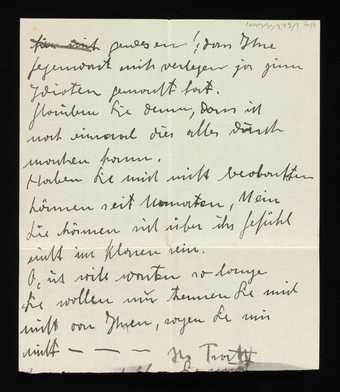 gewesen!, dass Ihre
Gegenwart mich verlegen ja zum
Idioten gemacht hat.
Glauben Sie denn, dass ich
noch einmal dies alles durch
machen kann.
Haben Sie mich nicht beobachten
können seit Monaten, Nein
Sie können sich über ihr Gefühl
nicht im klaren sein.
O, ich will warten so lange
Sie wollen nur trennen Sie mich
nicht von Ihnen, sagen Sie mir
nicht — — — Ihr